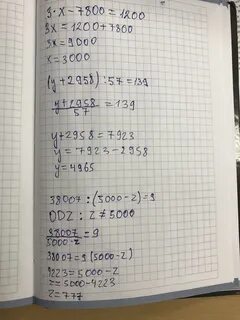 3·X-7800=1200
3x=1200+7800
3x=9000
x=3000
(y+2958):57=139
y+2958/57=139
y+2958=7923
y=7923-2958
y=4965
38007:(5000-z)=9
ODZ: z≠5000
38007/5000-z=9
38007=9(5000-z)
4223=5000-z
z=5000-4223
z=777